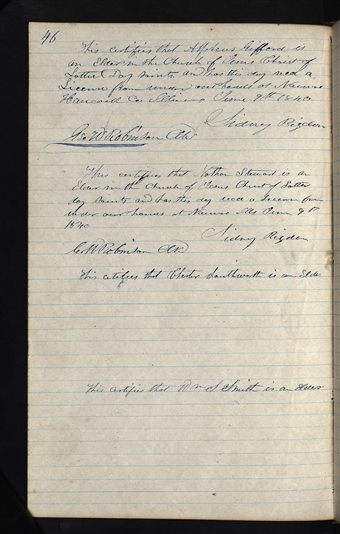 46
This certifies that Alpheus Gifford is
an Elder in the Church of Jesus Christ of
Latter Day Saints and has this day recd a
License from under our hands at Nauvoo
Hancock Co Illinois June 9th 1840
Sidney Rigdon
Geo W Robinson Clk
This certifies that Nathan Stewart is an
Elder in the Church of Jesus Christ of Latter
day saints and has this day recd a license from
under our hands at Nauvoo Ills June 9th
1840
Sidney Rigdon
G. W Robinson Clk
This certifies that Chester Southworth is an Elder
This certifies that Wm S Smith is an Elder